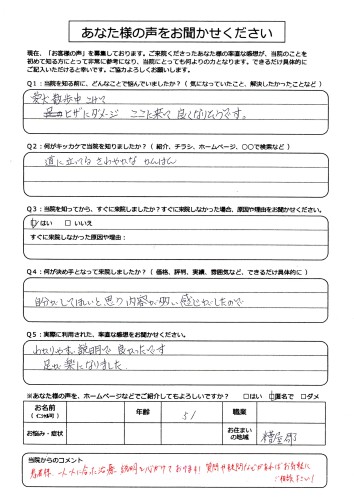 あなた様の声をお聞かせください
現在、「お客様の声」を募集しております。ご来院くださったあなた様の率直な感想が、当院のことを
初めて知る方にとって非常に参考になり、当院にとっても何よりの力となります。できるだけ具体的に
ご記入いただけると幸いです。ご協力よろしくお願いします。
Q1:当院を知る前に、どんなことで悩んでいましたか?(気になっていたこと、解決したかったことなど)
愛犬散歩中 こけて
足の ヒザにダメージ ここに来て 良くなりそうです。
Q2:何がキッカケで当院を知りましたか?(紹介、チラシ、ホームページ、〇〇で検索など)
道に立てる さわやかな かんばん
Q3:当院を知ってから、すぐに来院しましたか?すぐに来院しなかった場合、原因や理由をお聞かせください。
はい □いいえ
すぐに来院しなかった原因や理由:
Q4:何が決め手となって来院しましたか?(価格、評判、実績、雰囲気など、できるだけ具体的に)
自分がしてほしいと思う内容が 感じがしたので
Q5:実際に利用された、率直な感想をお聞かせください。
わかりやすい説明で 良かったです
足が 楽になりました
※あなた様の声を、ホームページなどでご紹介してもよろしいですか? □はい 匿名で □ダメ
お名前
年齢 51 職業
お悩み・症状 お住まいの地域 糟屋郡
当院からのコメント
患者様、一人一人に合った治療、説明を心がけております! 質問や疑問などがあればお気軽に
ご相談下さい!